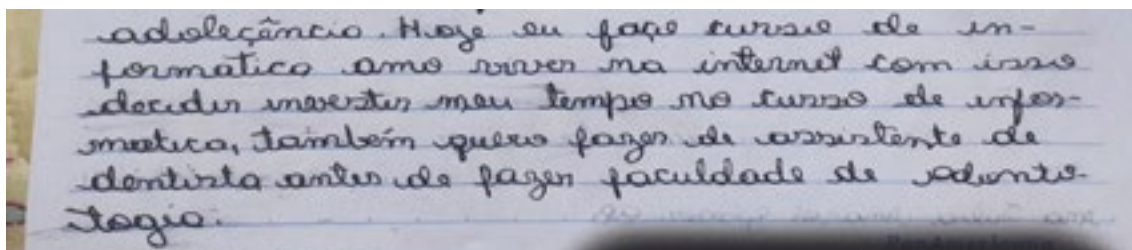 adoleçância. Hoje eu faço curso de in-
formatica amo viver na internet com isso
decider investir meu tempo no curso de infor-
matica, também quero fazer de assistente de
dentista antes de fazer faculdade de odonto-
logia.